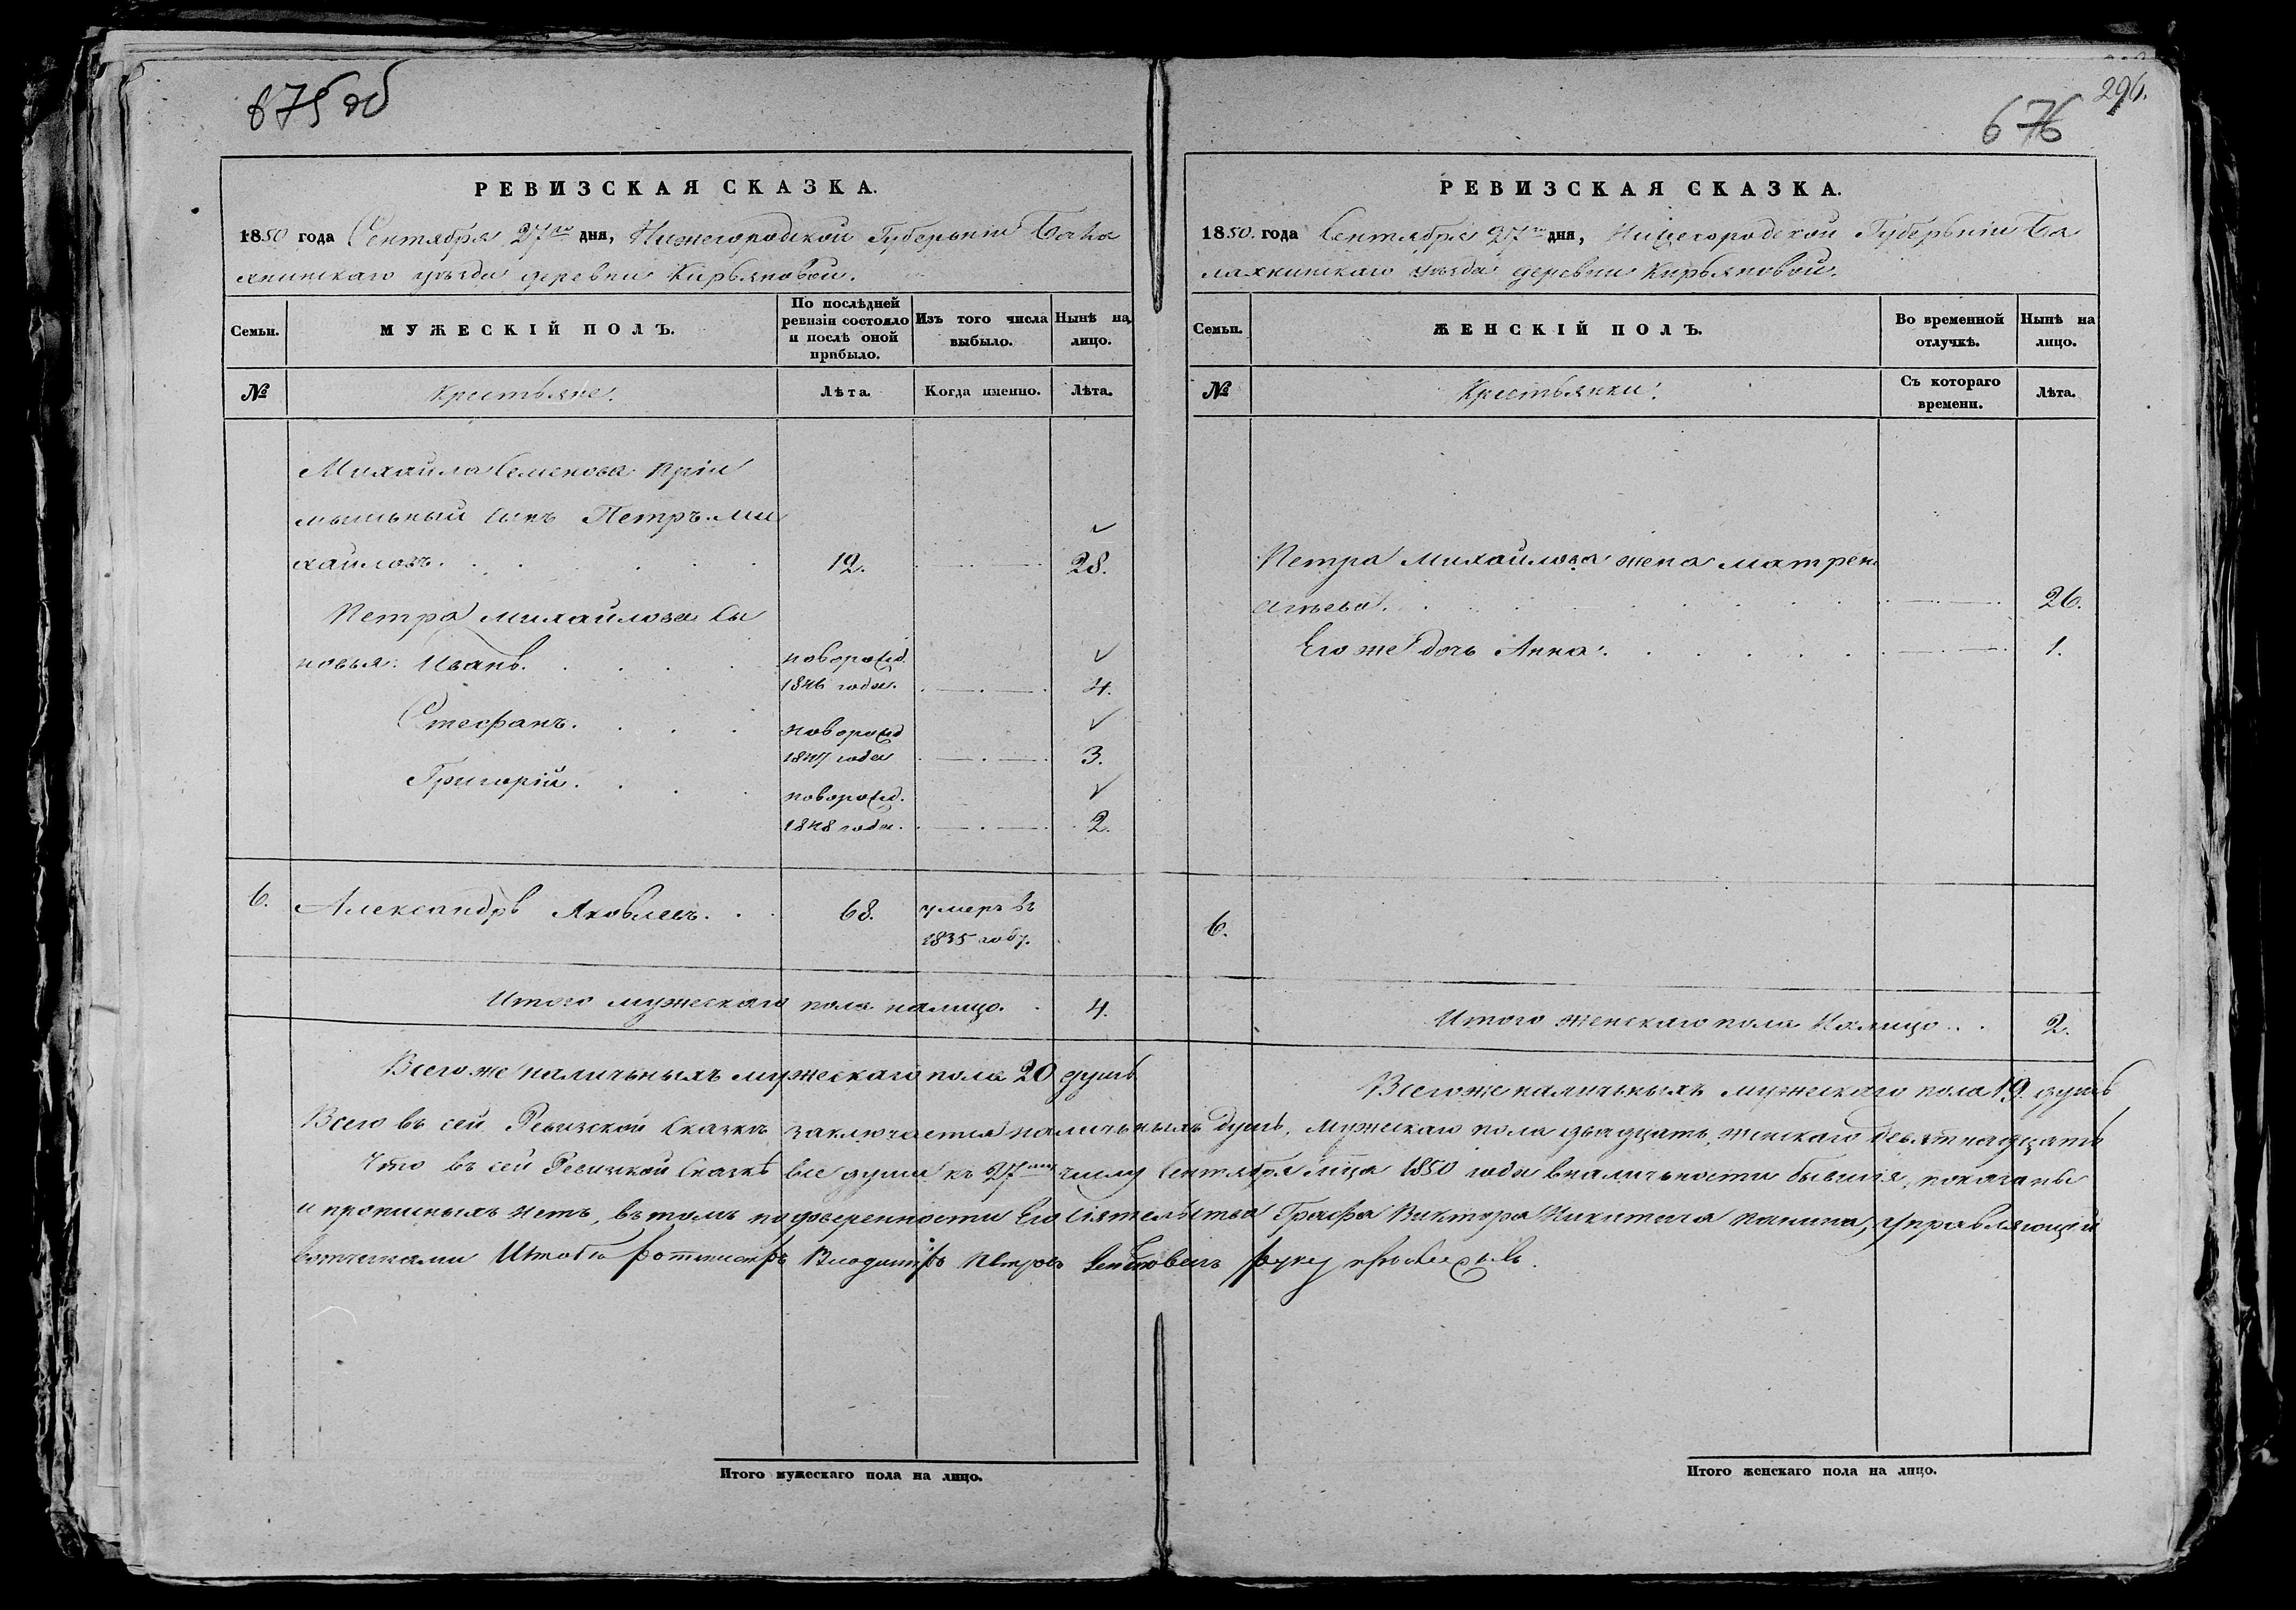 675 об
РЕВИЗСКАЯ СКАЗКА.
1850 года Сентября 27го дня, Нижегородской Губерьнiи Бала
хнинскаго уѣзда деревни Кирьяновой.
Семьи.
МУЖЕСКІЙ ПОЛЪ.
По послѣдней ревизіи состояло и послѣ оной прибыло.
Изъ того числа выбыло.
Нынѣ на лицо.
№
Крестьяне.
Лѣта.
Когда именно.
Лѣта.
Михайла Семенова прiи
мышьный сынъ Петръ Ми
хайловъ. 12. 28.
Петра Михайлова сы
новья: Иванъ. новорожд.
1846 года. 4.
Стефанъ. новорожд
1847 года 3.
Григорій. новорожд.
1848 года. 2.
6. Александръ Яковлевъ. 68. умеръ въ
1835 году.
Итого мужескаго пола налицо. 4.
Всего же наличьныхъ мужескаго пола 20 душъ
Итого мужескаго пола на лицо.
296.
676
РЕВИЗСКАЯ СКАЗКА.
1850. года Сентября 27го дня, Нижегородской Губерьніи Ба
лахнинскаго уѣзда деревни Кирьяновой.
Семьи.
ЖЕНСКІЙ ПОЛЪ.
Во временной отлучкѣ.
Нынѣ на лицо.
№
Крестьянки.
Съ котораго времени.
Лѣта.
Петра Михайлова жена Матрена
26.
Его же дочь Анна. 1.
6.
Итого женскаго пола налицо. 2.
Всего же наличьныхъ мужескаго пола 19. душъ
Всего въ сей Ревизской Сказкѣ заключается наличьныхъ душъ, мужескаго пола двадцать, женскаго девятнадцать
Что въ сей Ревизской Сказкѣ все души къ 27му числу Сентября мца 1850 года вналичьности бывшія, показаны
и прописныхъ нетъ, въ томъ по доверенности Его Сіятельства Графа Виктора Никитича Панина, Управляющій
вотчинами Штабъ ротмистръ Владимiръ Петровъ руку приложилъ.
Итого женскаго пола на лицо.